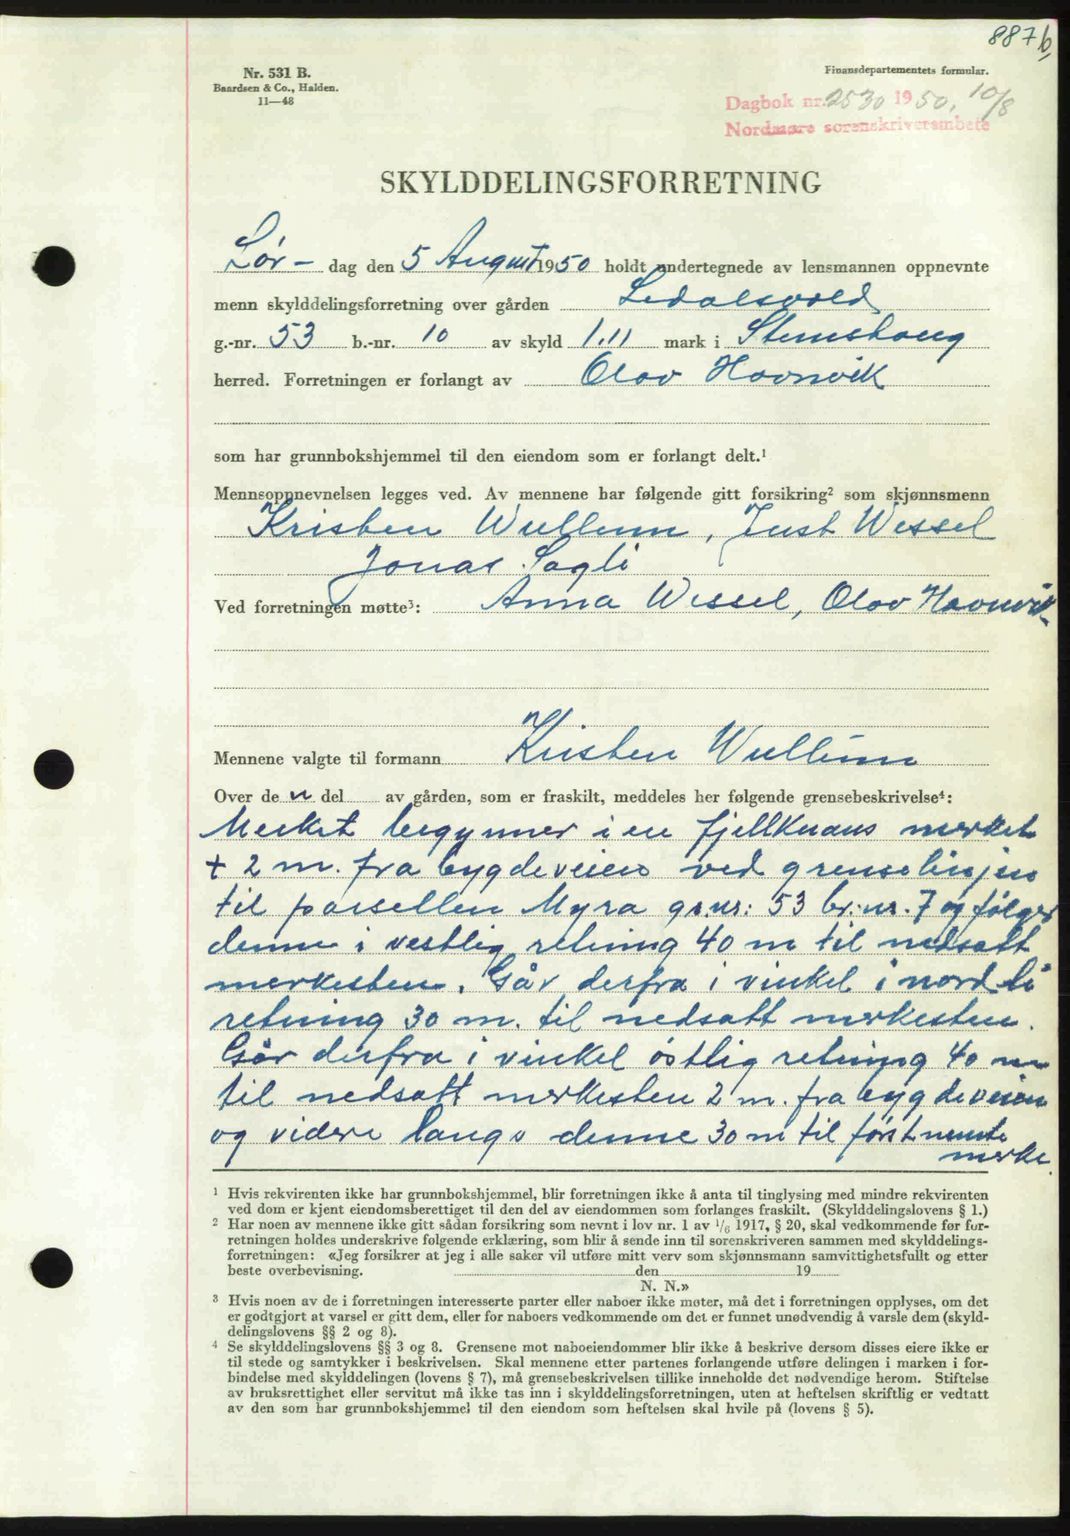 887b,
Nr. 531 B.
Baardsen & Co., Halden.
11—48
Finansdepartementets formular.
Dagbok nr. 2530 1950, 10/8
Nordmøre sorenskriverembete
SKYLDDELINGSFORRETNING
Lør- dag den 5 August 1950 holdt undertegnede av lensmannen oppnevnte
menn skylddelingsforretning over gården Ledalsvold
g.-nr. 53 b.-nr. 10 av skyld 1.11 mark i Stemshaug
herred. Forretningen er forlangt av Olav Havnvik
som har grunnbokshjemmel til den eiendom som er forlangt delt.¹
Mennsoppnevnelsen legges ved. Av mennene har følgende gitt forsikring² som skjønnsmenn
Kristen Wullum, Just Wessel
Jonas Sagli
Ved forretningen møtte³: Anna Wessel, Olav Havnvik
Mennene valgte til formann Kristen Wullum
Over de n del av gården, som er fraskilt, meddeles her følgende grensebeskrivelse⁴:
Merket begynner i en fjellknaus merket
+ 2 m. fra bygdeveien ved grenselinjen
til parsellen Myra gr.nr: 53 br.nr. 7 og følger
denne i vestlig retning 40 m til nedsatt
merkesten. Går derfra i vinkel i nordli
retning 30 m. til nedsatt merkesten.
Går derfra i vinkel østlig retning 40 m
til nedsatt merkesten 2 m. fra bygdeveien
og videre langs denne 30 m til først nemnte
merke.
¹ Hvis rekvirenten ikke har grunnbokshjemmel, blir forretningen ikke å anta til tinglysing med mindre rekvirenten
ved dom er kjent eiendomsberettiget til den del av eiendommen som forlanges fraskilt. (Skylddelingslovens § 1.)
² Har noen av mennene ikke gitt sådan forsikring som nevnt i lov nr. 1 av 1/6 1917, § 20, skal vedkommende før for-
retningen holdes underskrive følgende erklæring, som blir å sende inn til sorenskriveren sammen med skylddelings-
forretningen: «Jeg forsikrer at jeg i alle saker vil utføre mitt verv som skjønnsmann samvittighetsfullt og etter
beste overbevisning. den 19
N. N.»
³ Hvis noen av de i forretningen interesserte parter eller naboer ikke møter, må det i forretningen opplyses, om det
er godtgjort at varsel er gitt dem, eller for naboers vedkommende om det er funnet unødvendig å varsle dem (skyld-
delingslovens §§ 2 og 8).
⁴ Se skylddelingslovens §§ 3 og 8. Grensene mot naboeiendommer blir ikke å beskrive dersom disses eiere ikke er
til stede og samtykker i beskrivelsen. Skal mennene etter partenes forlangende utføre delingen i marken i for-
bindelse med skylddelingen (lovens § 7), må grensebeskrivelsen tillike inneholde det nødvendige herom. Stiftelse
av bruksrettighet eller servitut må ikke tas inn i skylddelingsforretningen, uten at heftelsen skriftlig er vedtatt
av den som har grunnbokshjemmel til den eiendom som heftelsen skal hvile på (lovens § 5).